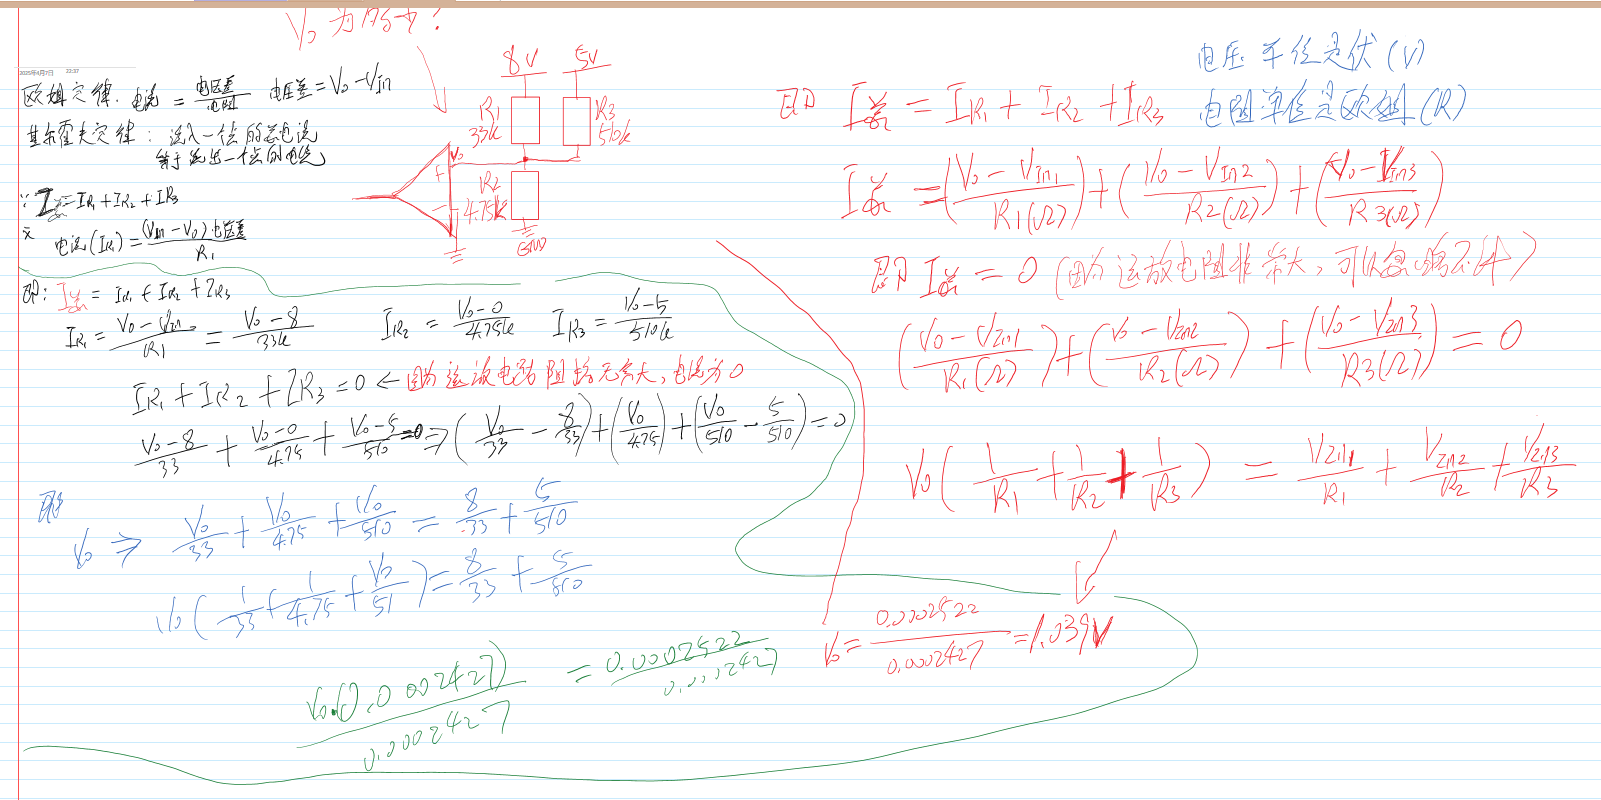 V₀ 为多少?
2025年4月7日 22:37
欧姆定律. 电流 = 电压差/电阻 电压差 = V₀ - VIn
基尔霍夫定律: 流入一个点的总电流
等于流出一个点的电流
∵ I总 = IR₁ + IR₂ + IR₃
电流(IR₁) = (VIn - V₀) 电压差 / R₁
8V 5V
R₁ 33k
R₃ 510k
V₀
+
-
R₂ 4.75k
GND
即: I总 = IR₁ + IR₂ + IR₃
IR₁ = (V₀ - VIn)/R₁ = (V₀ - 8)/33k IR₂ = (V₀ - 0)/4.75k IR₃ = (V₀ - 5)/510k
IR₁ + IR₂ + IR₃ = 0 ← 因为运放电路阻抗无穷大, 电流为0
(V₀ - 8)/33 + (V₀ - 0)/4.75 + (V₀ - 5)/510 = 0 ⇒ (V₀/33 - 8/33) + (V₀/4.75) + (V₀/510 - 5/510) = 0
即
V₀ ⇒ V₀/33 + V₀/4.75 + V₀/510 = 8/33 + 5/510
V₀(1/33 + 1/4.75 + V₀/51) = 8/33 + 5/510
V₀.(0.0002427)/0.0002427 = 0.0002522/0.0002427
电压单位是伏(V)
电阻单位是欧姆(R)
即 I总 = IR₁ + IR₂ + IR₃
I总 = (V₀ - VIn1)/R1(Ω) + (V₀ - VIn2)/R2(Ω) + (V₀ - VIn3)/R3(Ω)
即 I总 = 0 (因为运放电阻非常大, 可以忽略不计)
(V₀ - VIn1)/R1(Ω) + (V₀ - VIn2)/R2(Ω) + (V₀ - VIn3)/R3(Ω) = 0
V₀(1/R1 + 1/R2 + 1/R3) = VIn1/R1 + VIn2/R2 + VIn3/R3
V₀ = 0.0002522/0.0002427 = 1.039V